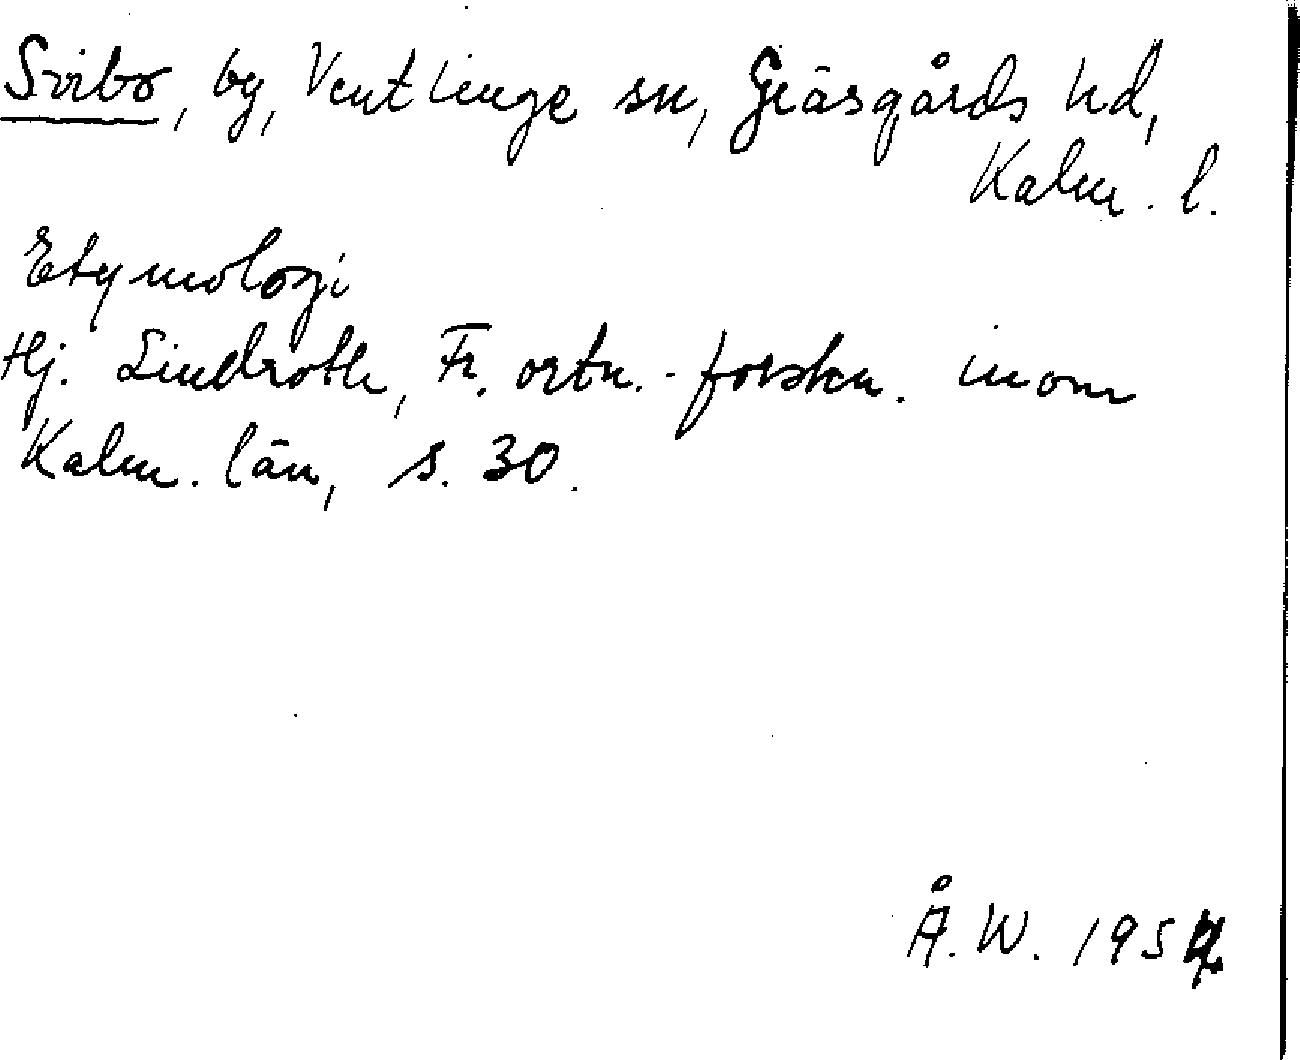 Svibo, by, Ventlinge sn, Gräsgårds hd,
Kalm. l.
Etymologi
Hj. Lindroth, Fr. ortn.-forskn. inom
Kalm. län, s. 30.
Å. W. 1954